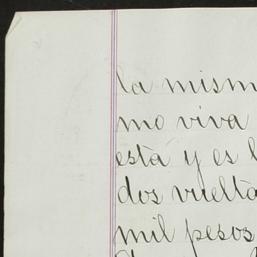 la mism
mo viva
está y es l
dos vuelta
mil pesos